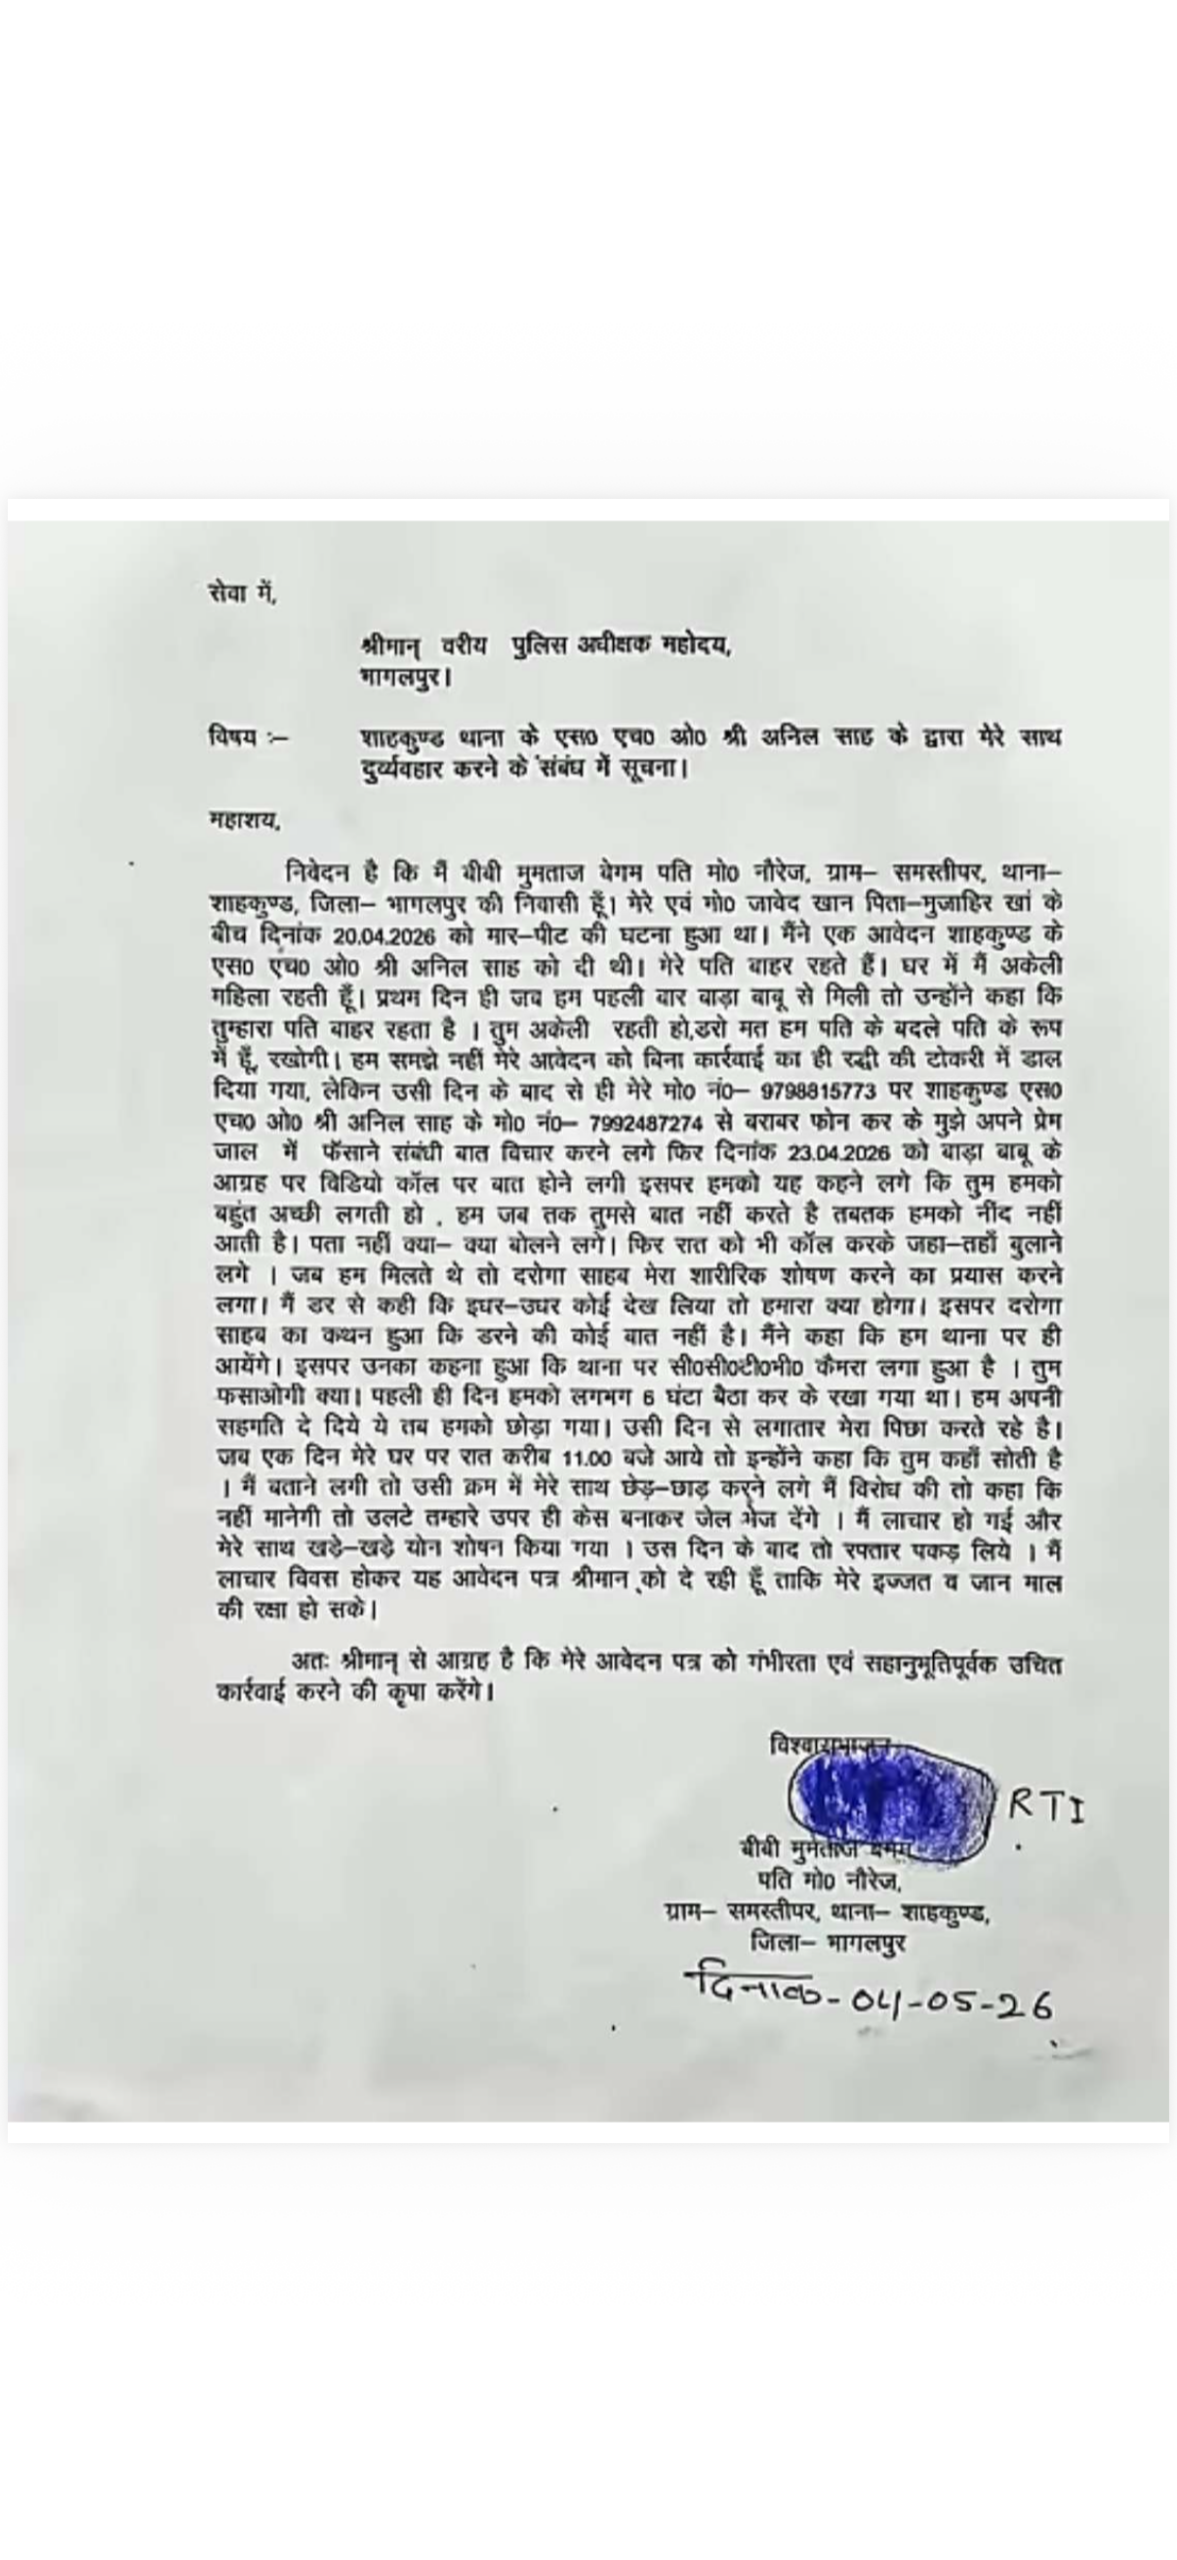 सेवा में,
श्रीमान् वरीय पुलिस अधीक्षक महोदय,
भागलपुर।
विषय :– शाहकुण्ड थाना के एस0 एच0 ओ0 श्री अनिल साह के द्वारा मेरे साथ
दुर्व्यवहार करने के संबंध में सूचना।
महाशय,
निवेदन है कि मैं बीबी मुमताज बेगम पति मो0 नौरेज, ग्राम– समस्तीपर, थाना–
शाहकुण्ड, जिला– भागलपुर की निवासी हूँ। मेरे एवं मो0 जावेद खान पिता–मुजाहिर खां के
बीच दिनांक 20.04.2026 को मार–पीट की घटना हुआ था। मैंने एक आवेदन शाहकुण्ड के
एस0 एच0 ओ0 श्री अनिल साह को दी थी। मेरे पति बाहर रहते हैं। घर में मैं अकेली
महिला रहती हूँ। प्रथम दिन ही जब हम पहली बार बाड़ा बाबू से मिली तो उन्होंने कहा कि
तुम्हारा पति बाहर रहता है । तुम अकेली रहती हो,डरो मत हम पति के बदले पति के रूप
में हूँ, रखोगी। हम समझे नहीं मेरे आवेदन को बिना कार्रवाई का ही रद्धी की टोकरी में डाल
दिया गया, लेकिन उसी दिन के बाद से ही मेरे मो0 नं0– 9798815773 पर शाहकुण्ड एस0
एच0 ओ0 श्री अनिल साह के मो0 नं0– 7992487274 से बराबर फोन कर के मुझे अपने प्रेम
जाल में फँसाने संबंधी बात विचार करने लगे फिर दिनांक 23.04.2026 को बाड़ा बाबू के
आग्रह पर विडियो कॉल पर बात होने लगी इसपर हमको यह कहने लगे कि तुम हमको
बहुंत अच्छी लगती हो , हम जब तक तुमसे बात नहीं करते है तबतक हमको नींद नहीं
आती है। पता नहीं क्या– क्या बोलने लगे। फिर रात को भी कॉल करके जहा–तहाँ बुलाने
लगे । जब हम मिलते थे तो दरोगा साहब मेरा शारीरिक शोषण करने का प्रयास करने
लगा। मैं डर से कही कि इधर–उधर कोई देख लिया तो हमारा क्या होगा। इसपर दरोगा
साहब का कथन हुआ कि डरने की कोई बात नहीं है। मैंने कहा कि हम थाना पर ही
आयेंगे। इसपर उनका कहना हुआ कि थाना पर सी0सी0टी0भी0 कैमरा लगा हुआ है । तुम
फसाओगी क्या। पहली ही दिन हमको लगभग 6 घंटा बैठा कर के रखा गया था। हम अपनी
सहमति दे दिये ये तब हमको छोड़ा गया। उसी दिन से लगातार मेरा पिछा करते रहे है।
जब एक दिन मेरे घर पर रात करीब 11.00 बजे आये तो इन्होंने कहा कि तुम कहाँ सोती है
। मैं बताने लगी तो उसी क्रम में मेरे साथ छेड़–छाड़ करने लगे मैं विरोध की तो कहा कि
नहीं मानेगी तो उलटे तम्हारे उपर ही केस बनाकर जेल भेज देंगे । मैं लाचार हो गई और
मेरे साथ खड़े–खड़े योन शोषन किया गया । उस दिन के बाद तो रफ्तार पकड़ लिये । मैं
लाचार विवस होकर यह आवेदन पत्र श्रीमान को दे रही हूँ ताकि मेरे इज्जत व जान माल
की रक्षा हो सके।
अतः श्रीमान् से आग्रह है कि मेरे आवेदन पत्र को गंभीरता एवं सहानुभूतिपूर्वक उचित
कार्रवाई करने की कृपा करेंगे।
विश्वासभाजन
RTI
बीबी मुमताज बेगम
पति मो0 नौरेज,
ग्राम– समस्तीपर, थाना– शाहकुण्ड,
जिला– भागलपुर
दिनांक-04-05-26